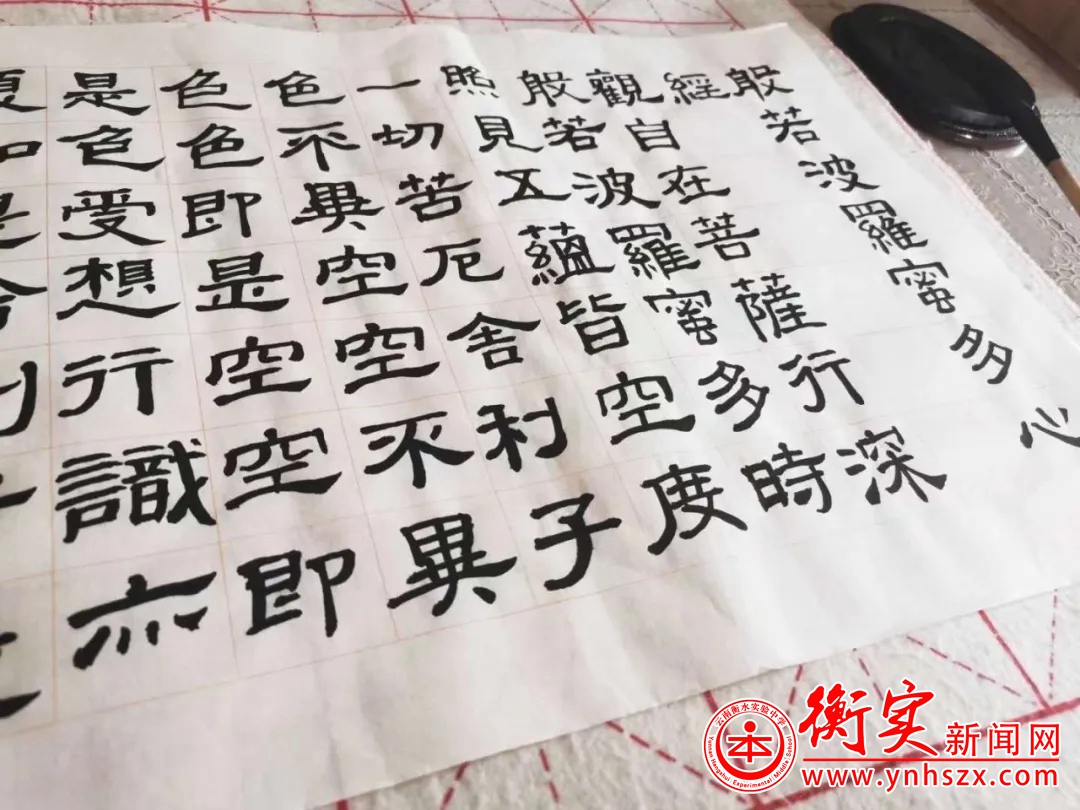 般若波羅蜜多心
經
觀自在菩薩行深
般若波羅蜜多時
照見五蘊皆空度
一切苦厄舍利子
色不異空空不異
色色即是空空即
是色受想行識亦
云南衡水实验中学
本
Yunnan Hengshui Experimental Middle School
衡实新闻网
www.ynhszx.com